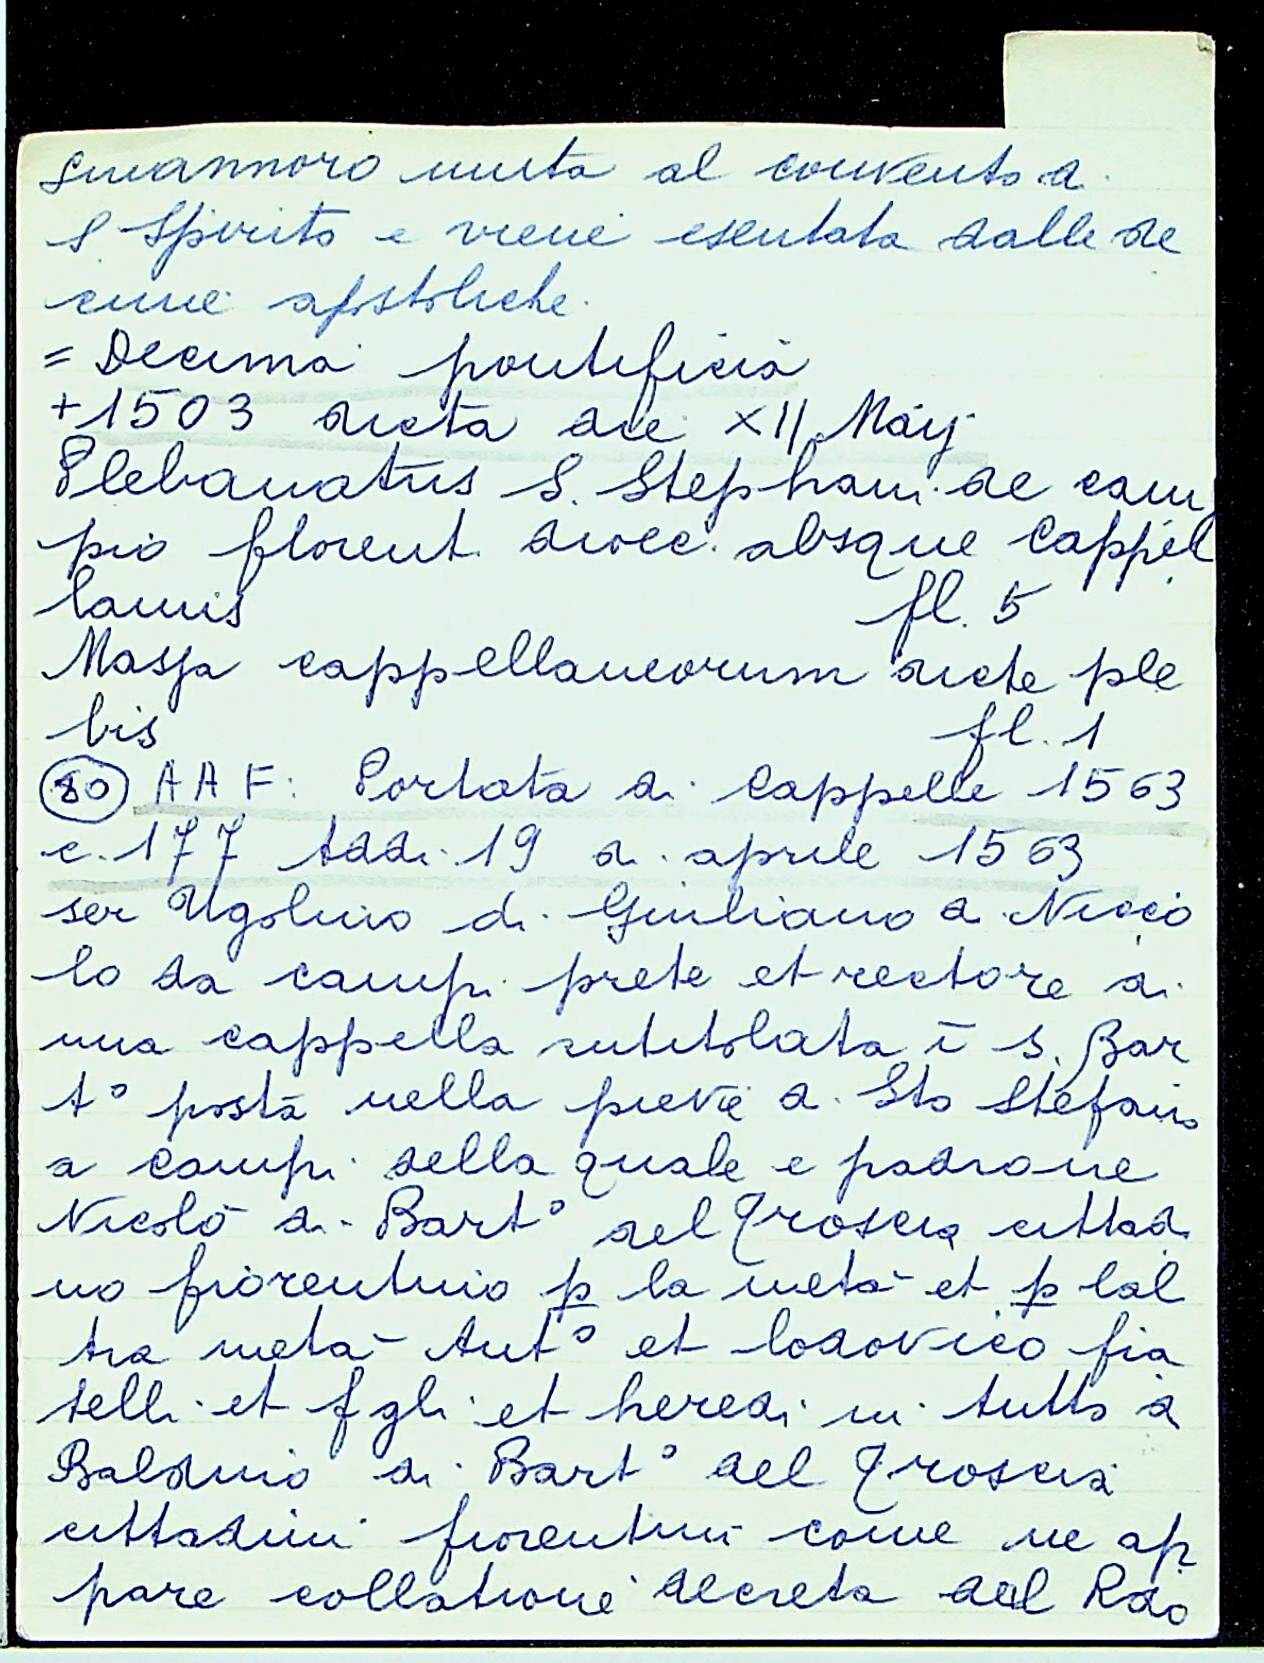 smannoro unita al convento di
S Spirito e viene esentata dalle de
cime apostoliche.
= Decima pontificia
+1503 dicta die XII Maij
Plebanatus S. Stephani de cam
pio florent. dioec. absque cappel
lanis fl. 5
Massa cappellaneorum dicte ple
bis fl. 1
80 A A F: Portata di Cappelle 1563
c. 177 Addi 19 di aprile 1563
ser Ugolino di Giuliano di Nicco
lo da campi prete et rectore di
una cappella intitolata ī S. Bar
tº posta nella pieve di Sto Stefano
a campi della quale e padrone
Nicolò di Bartº del Troscia cittadi
no fiorentino p la metà et p lal
tra metà Antº et lodovico fra
telli et figli et heredi in tutto di
Baldino di Bartº del Troscia
cittadini fiorentini come ne ap
pare collatione decreta dal Rdo